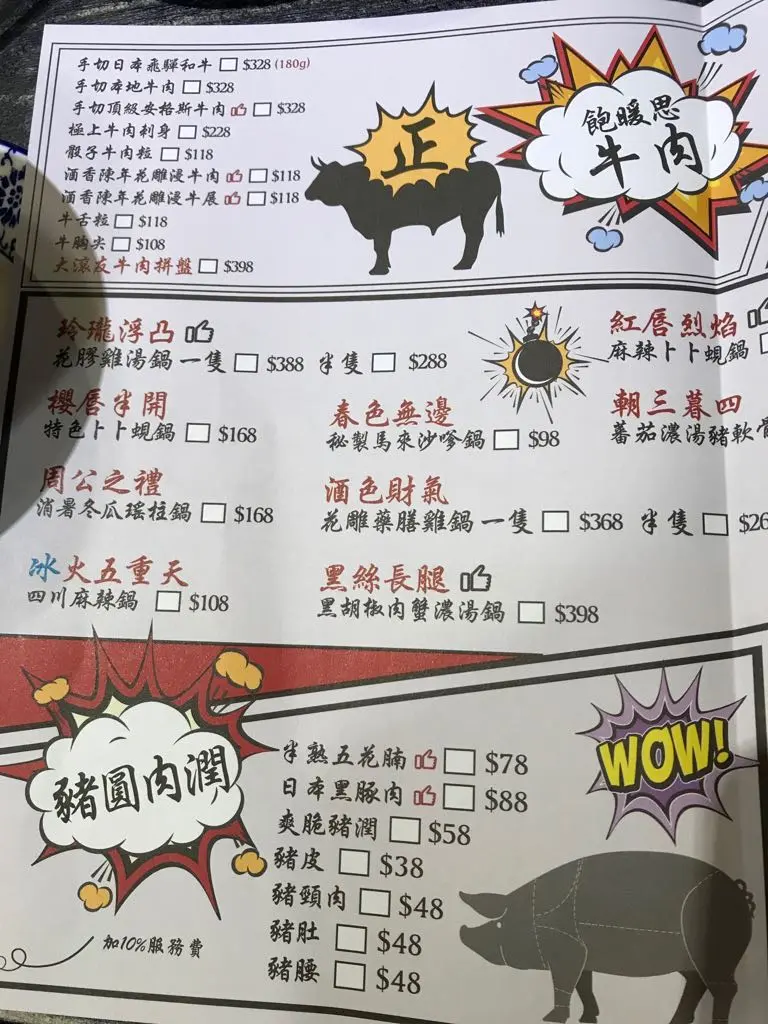 手切日本飛騨和牛 $328 (180g)
手切本地牛肉 $328
手切頂級安格斯牛肉 $328
極上牛肉刺身 $228
骰子牛肉粒 $118
酒香陳年花雕漫牛肉 $118
酒香陳年花雕漫牛展 $118
牛舌粒 $118
牛胸尖 $108
大滾友牛肉拼盤 $398
正
飽暖思
牛肉
玲瓏浮凸
花膠雞湯鍋 一隻 $388 半隻 $288
紅唇烈焰
麻辣卜卜蜆鍋
櫻唇半開
特色卜卜蜆鍋 $168
春色無邊
秘製馬來沙嗲鍋 $98
朝三暮四
蕃茄濃湯豬軟
周公之禮
消暑冬瓜瑤柱鍋 $168
酒色財氣
花雕藥膳雞鍋 一隻 $368 半隻 $26
冰火五重天
四川麻辣鍋 $108
黑絲長腿
黑胡椒肉蟹濃湯鍋 $398
豬圓肉潤
半熟五花腩 $78
日本黑豚肉 $88
爽脆豬潤 $58
豬皮 $38
豬頸肉 $48
豬肚 $48
豬腰 $48
WOW!
加10%服務費